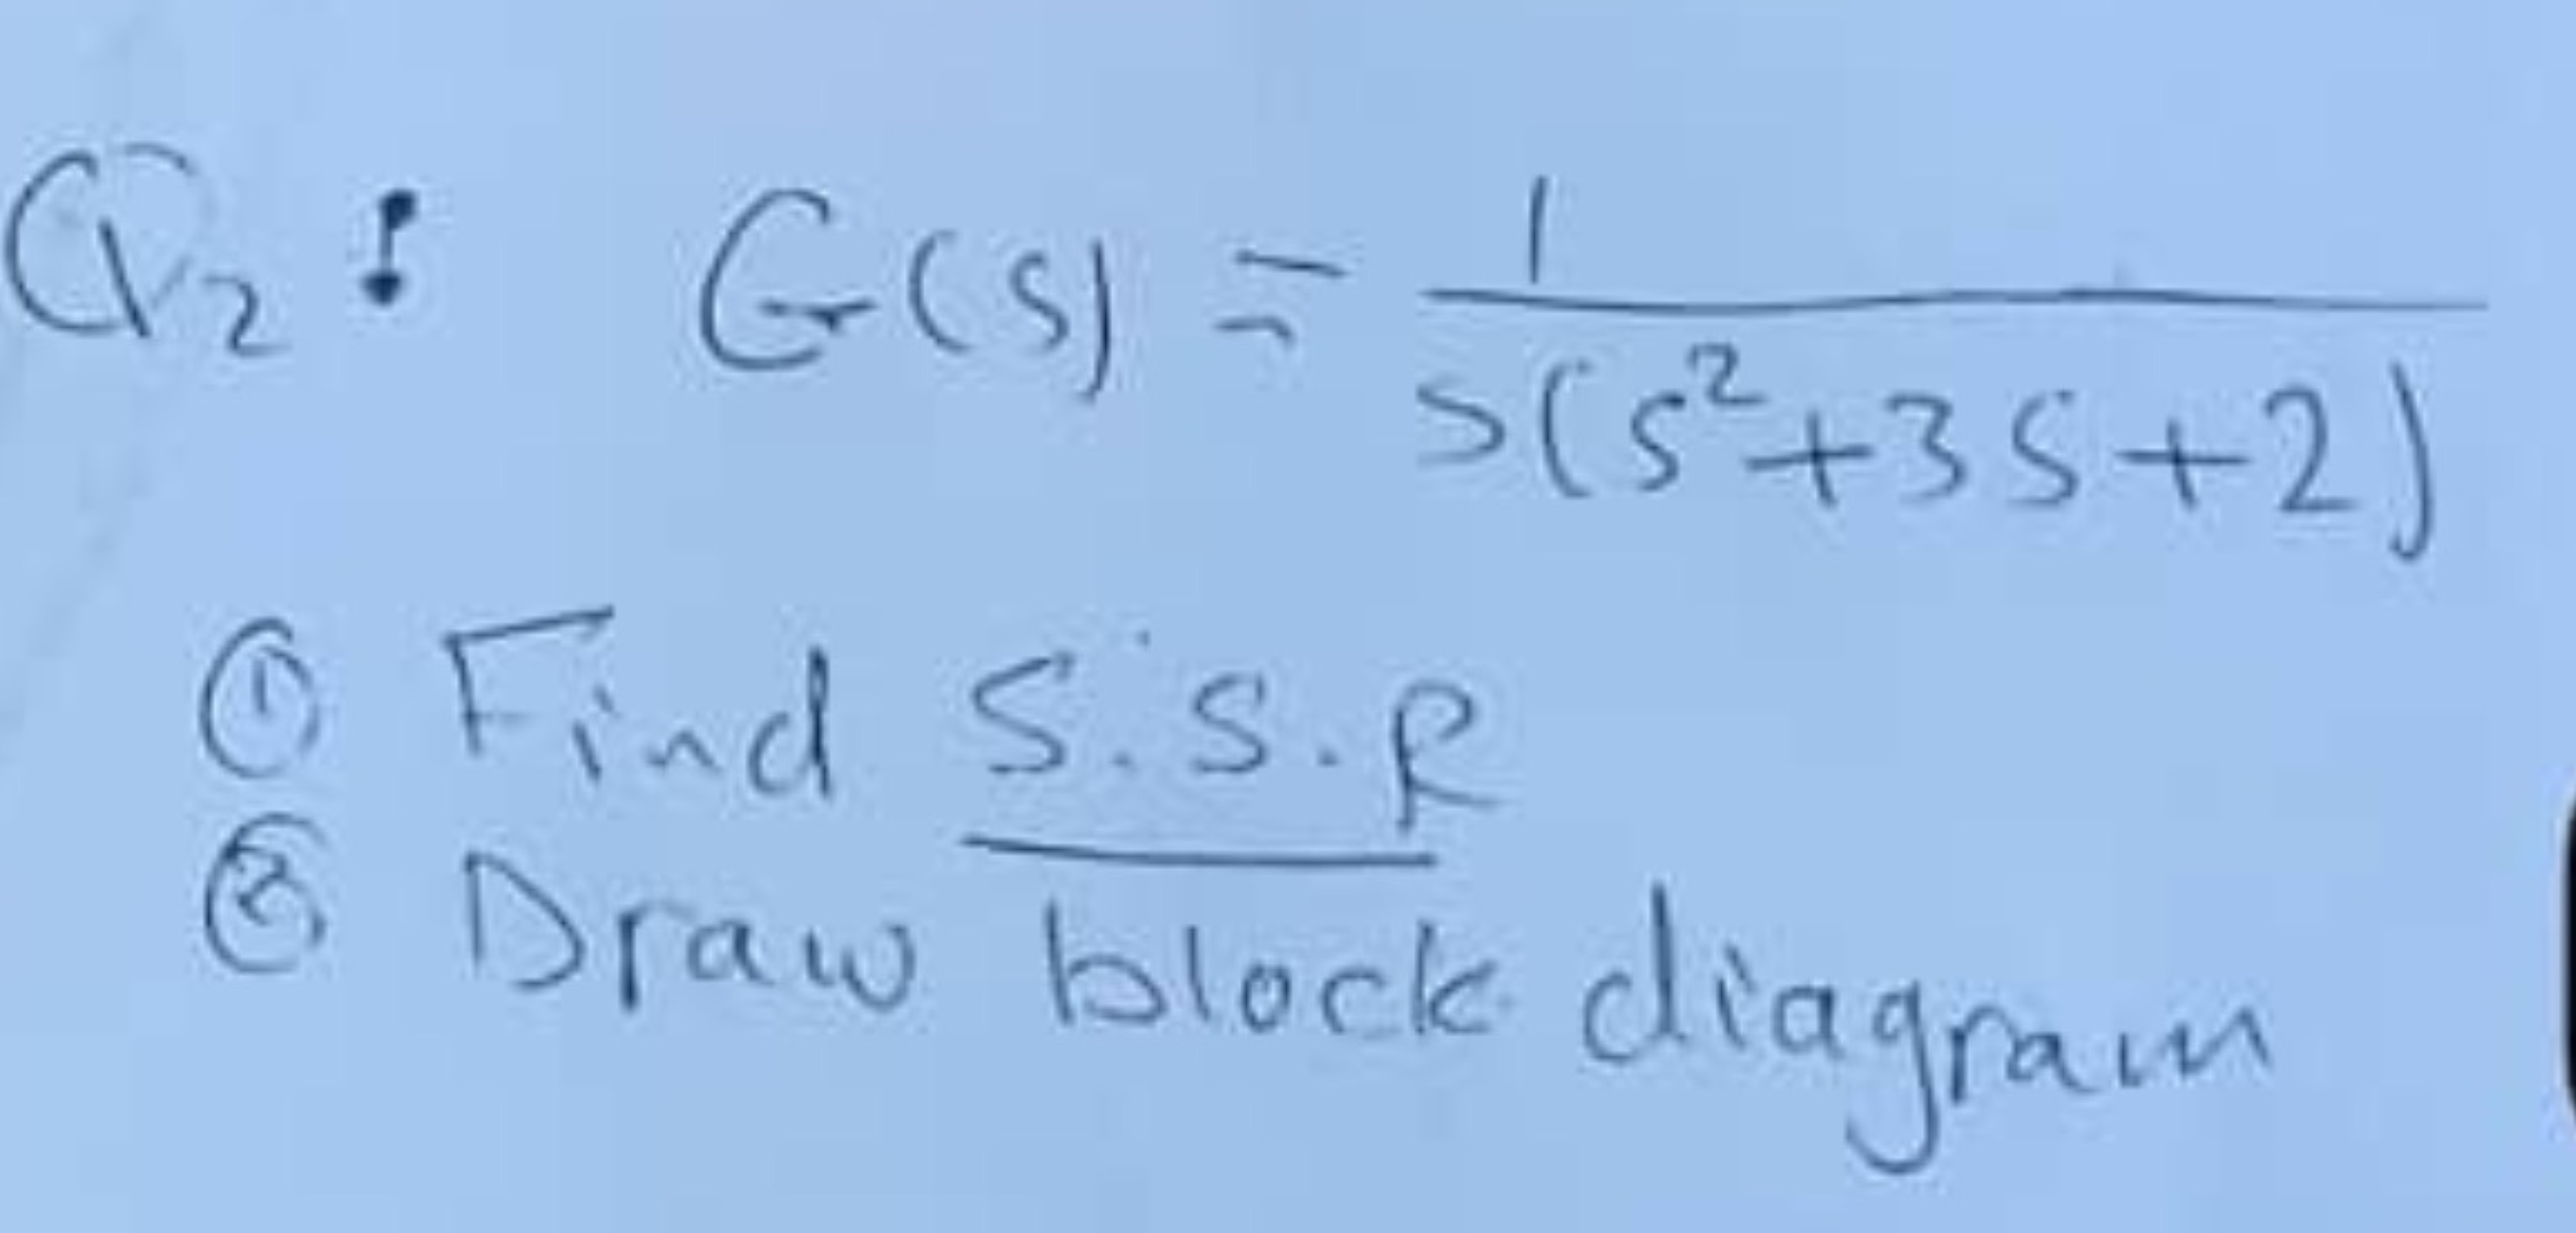 Q2: G(s) = 1 / s(s²+3s+2)
① Find S.S.R
② Draw block diagram